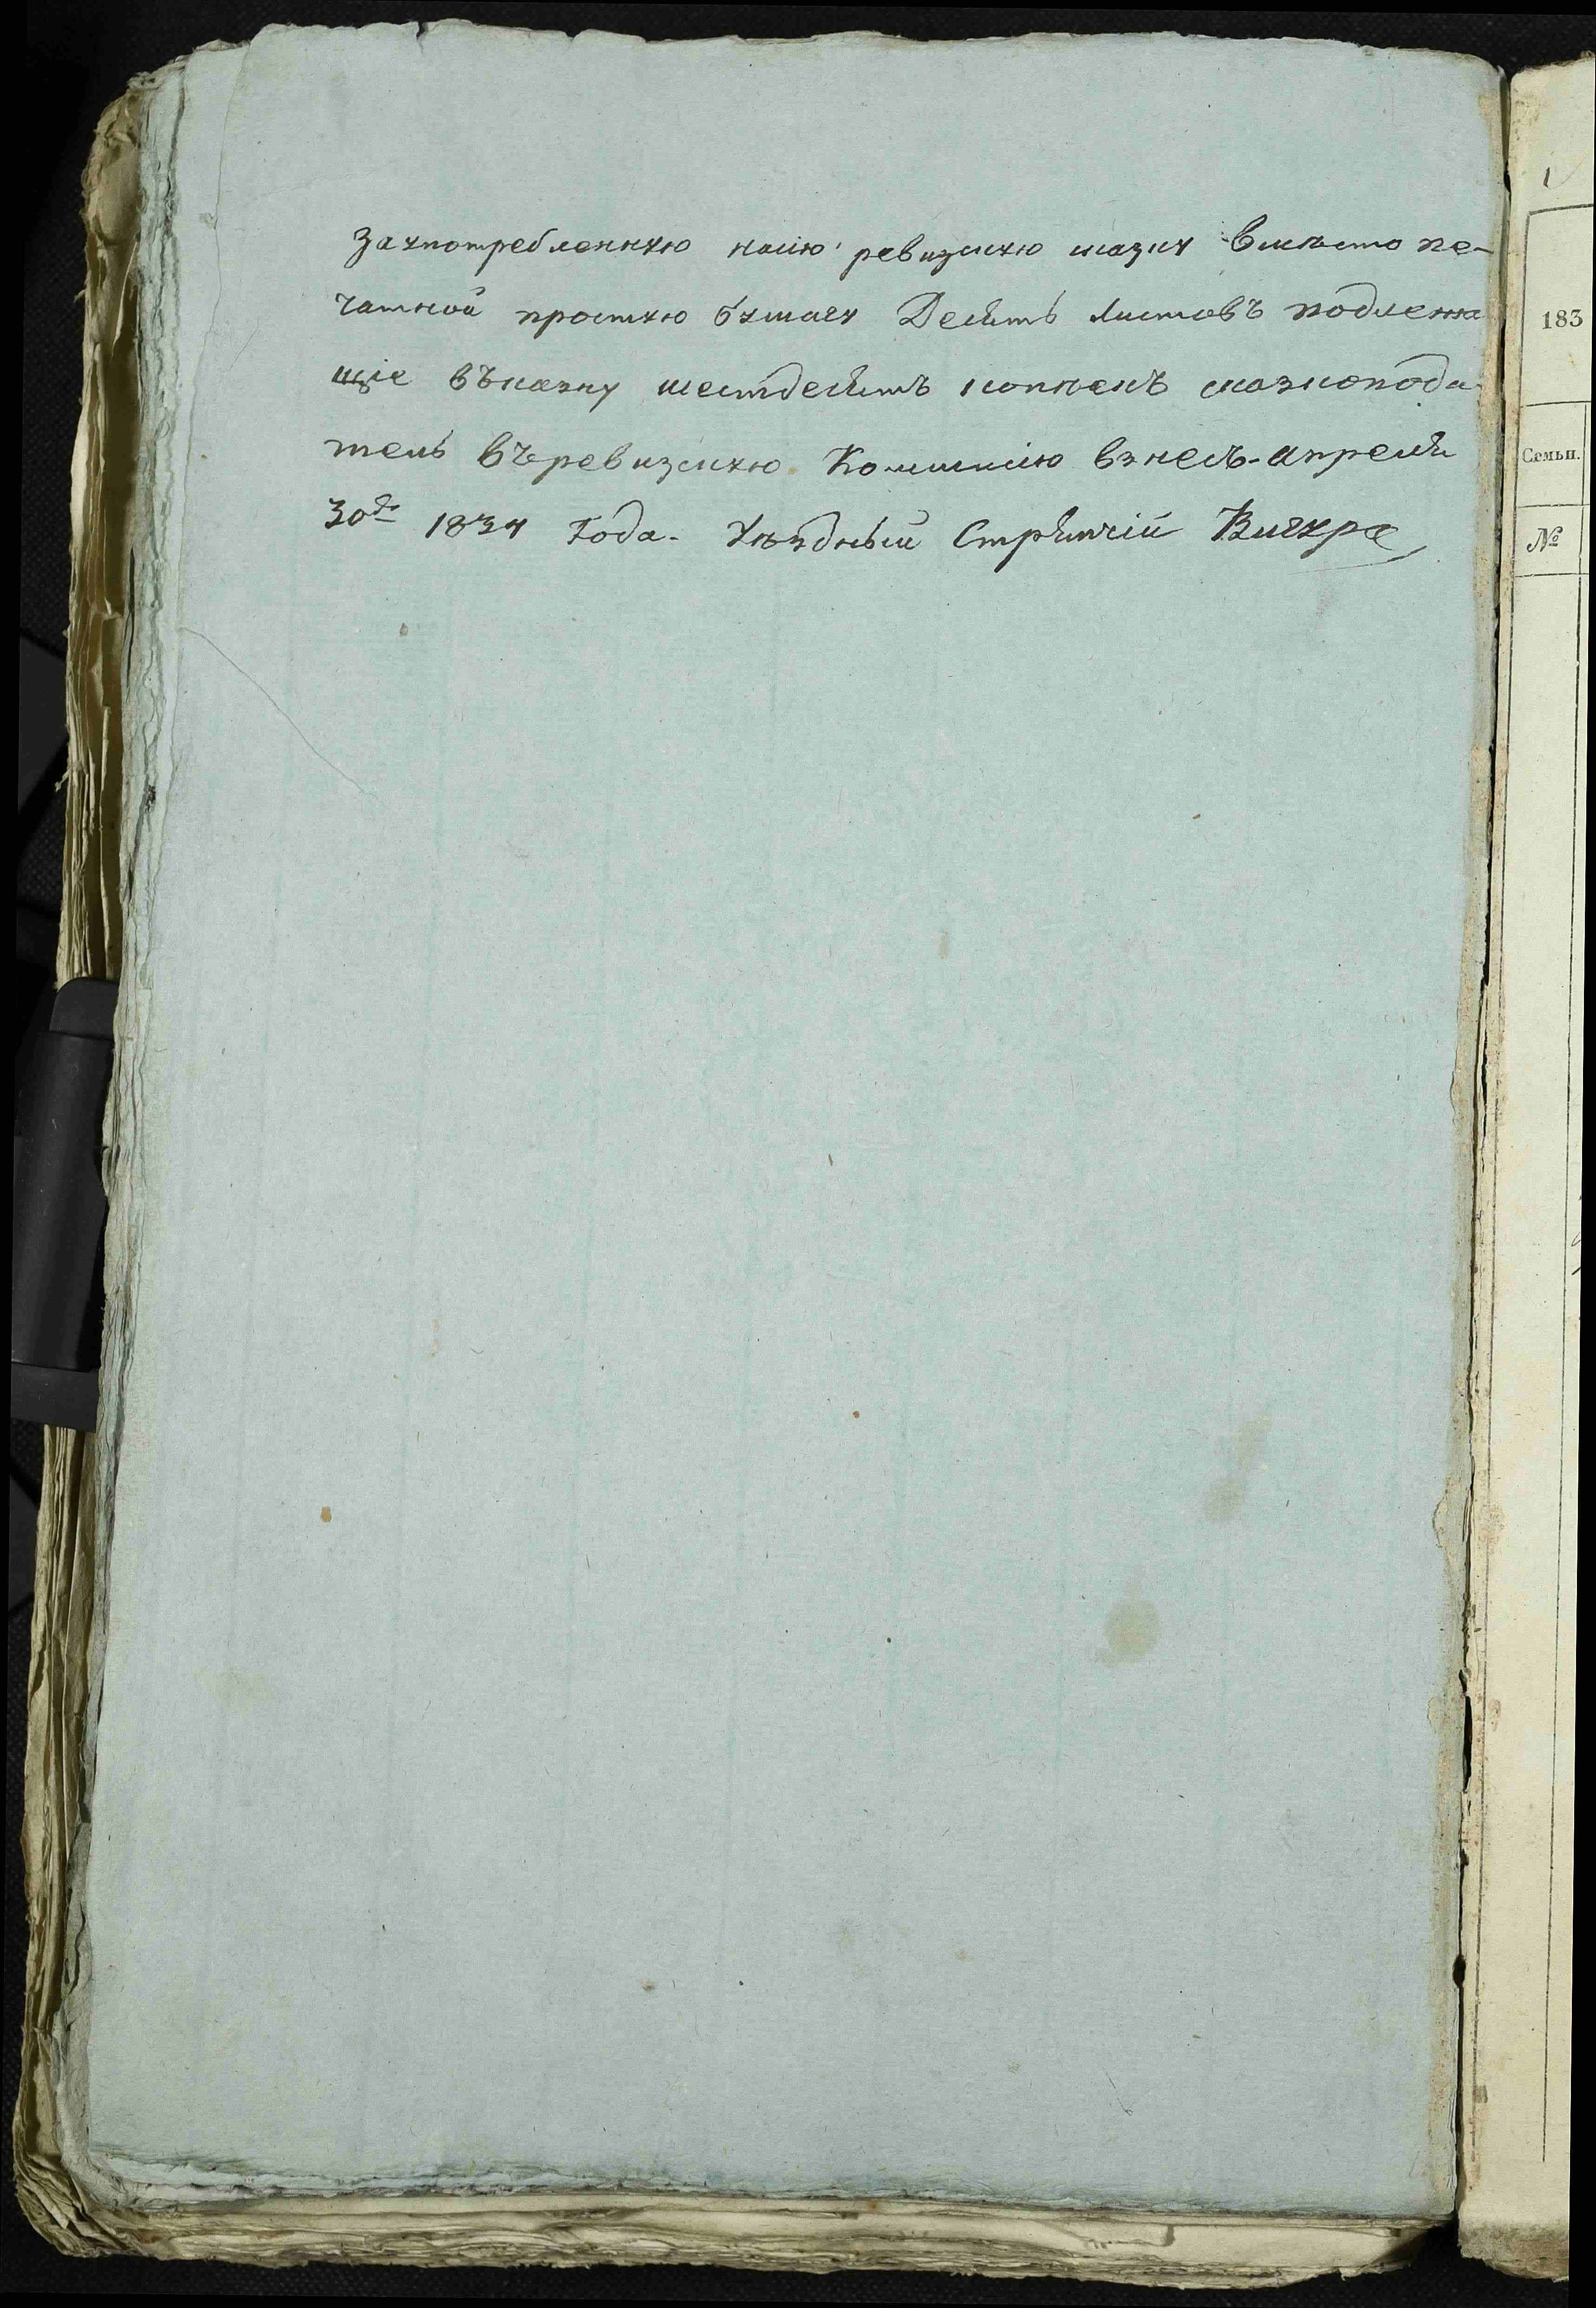 Заупотребленную насию ревизскую сказку вмѣсто пе-
чатной простую бумагу Десять листовъ подлежа
щіе въказну шестдесятъ копѣекъ сказкопода-
тель въревизскую Коммисію взнесъ. апреля
30го 1834 Года. Уѣздный Стряпчій
183
Семьи.
№